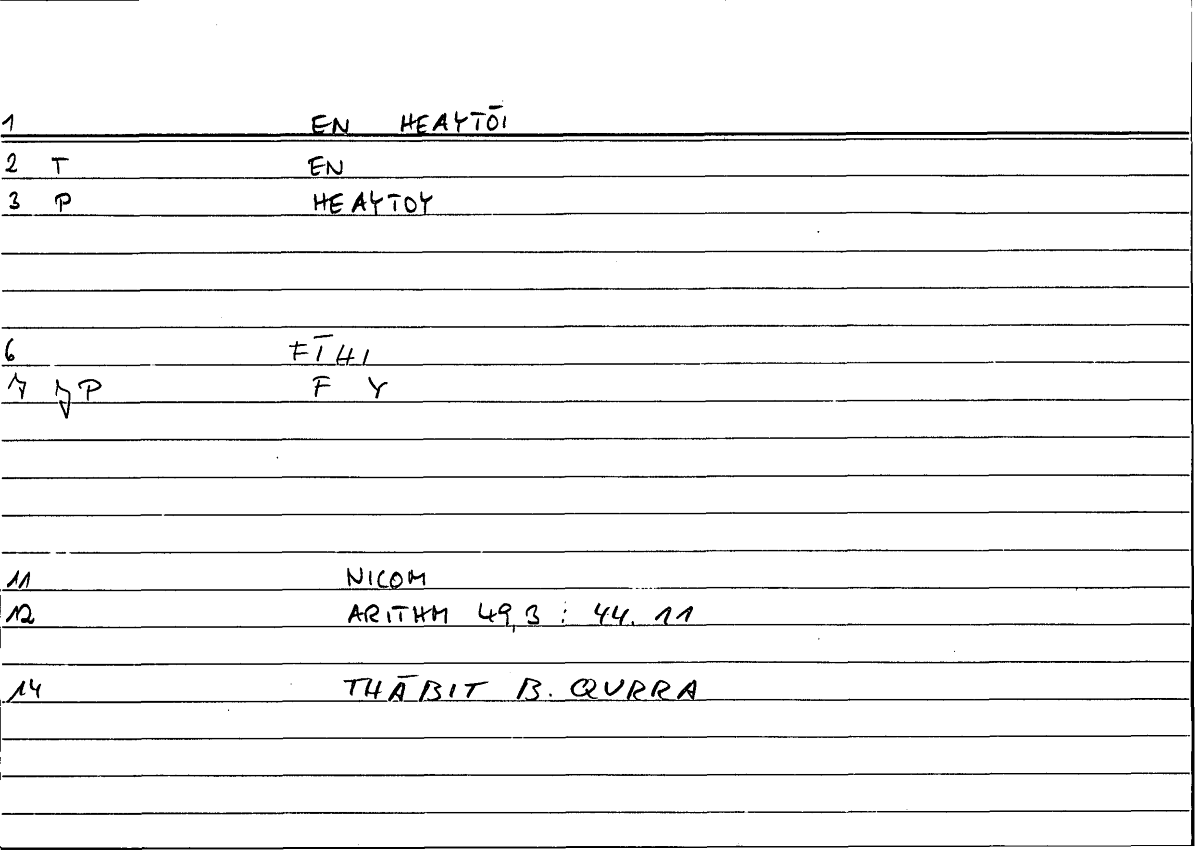 1 EN HEAYTŌI
2 T EN
3 P HEAYTOY
6 FĪHI
7 P F Y
11 NICOM
12 ARITHM 49,3 : 44.11
14 THĀBIT B. QURRA